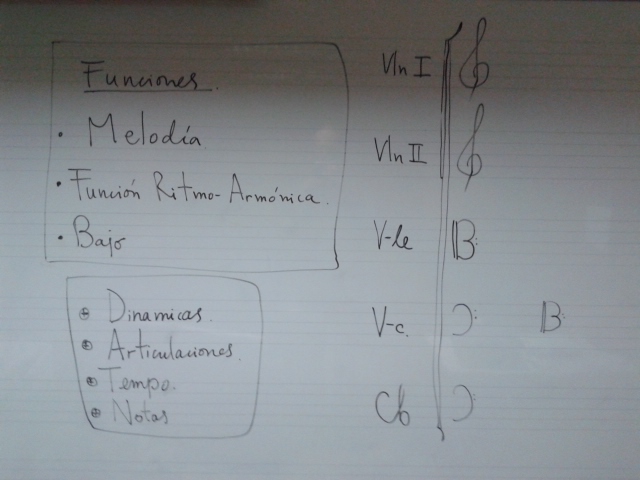 Funciones.
• Melodía
• Función Ritmo-Armónica.
• Bajo
Dinamicas.
Articulaciones.
Tempo.
Notas
Vln I
Vln II
V-le
V-c.
Cb